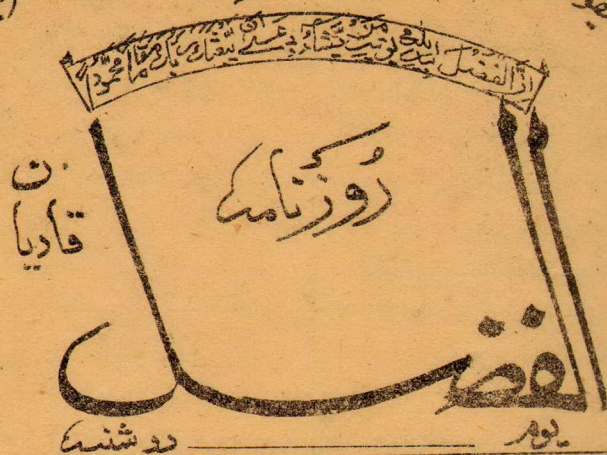 اِنَّ الْفَضْلَ بِيَدِ اللّٰهِ يُؤْتِيْهِ مَنْ يَّشَآءُ عَسٰٓى اَنْ يَّبْعَثَكَ رَبُّكَ مَقَامًا مَّحْمُوْدًا
رُوزنامہ
قادیان
الفضل
یوم دوشنبہ